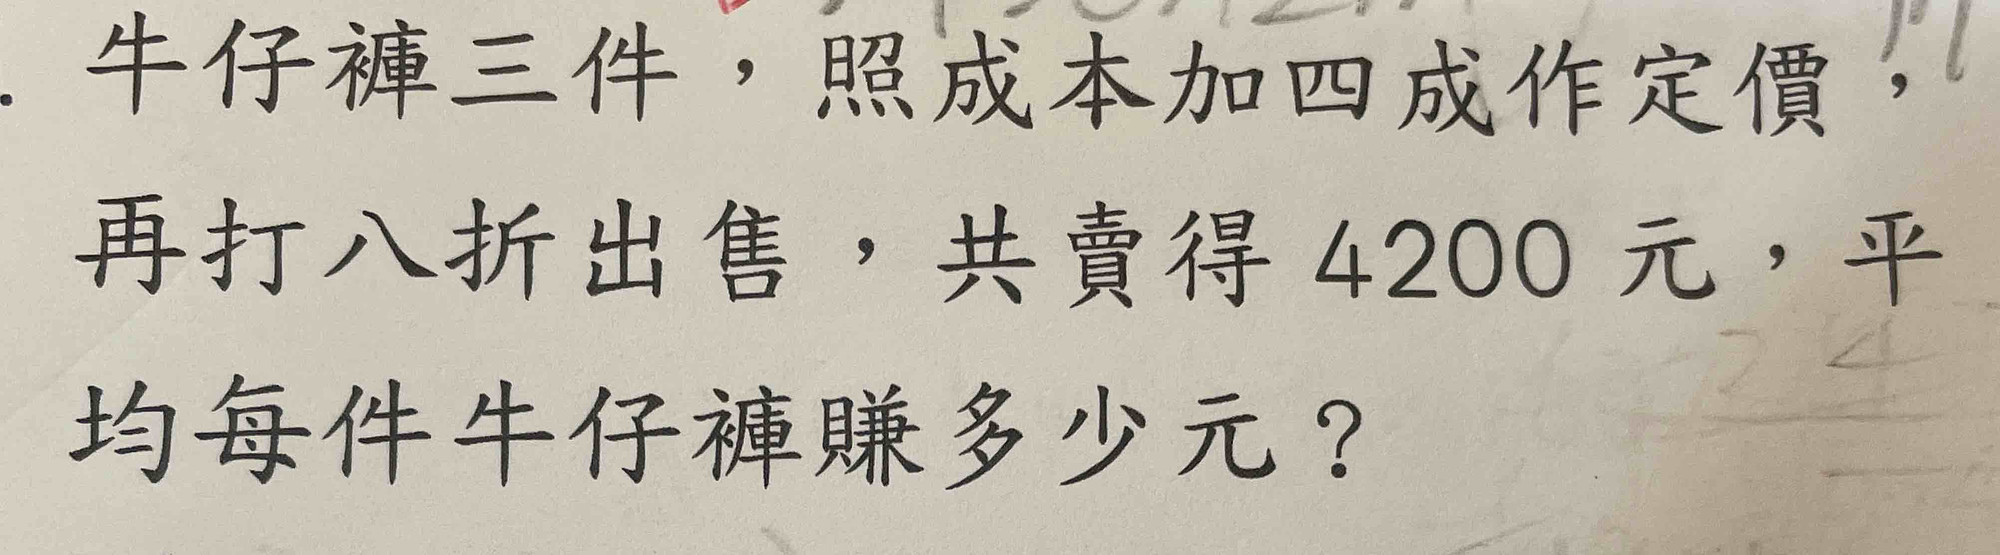 牛仔褲三件，照成本加四成作定價，
再打八折出售，共賣得 4200 元，平
均每件牛仔褲賺多少元？